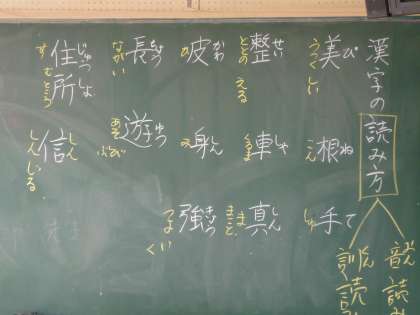 漢字の読み方
音読み
訓読
美 び
うつくしい
根 ね
こん
手 て
しゅ
整 せい
ととのえる
車 しゃ
くるま
真 しん
まこと
皮 かわ
身 しん
み
強
つよい
長
ながい
遊
あそぶ
住所
すむところ
信 しん
しんじる